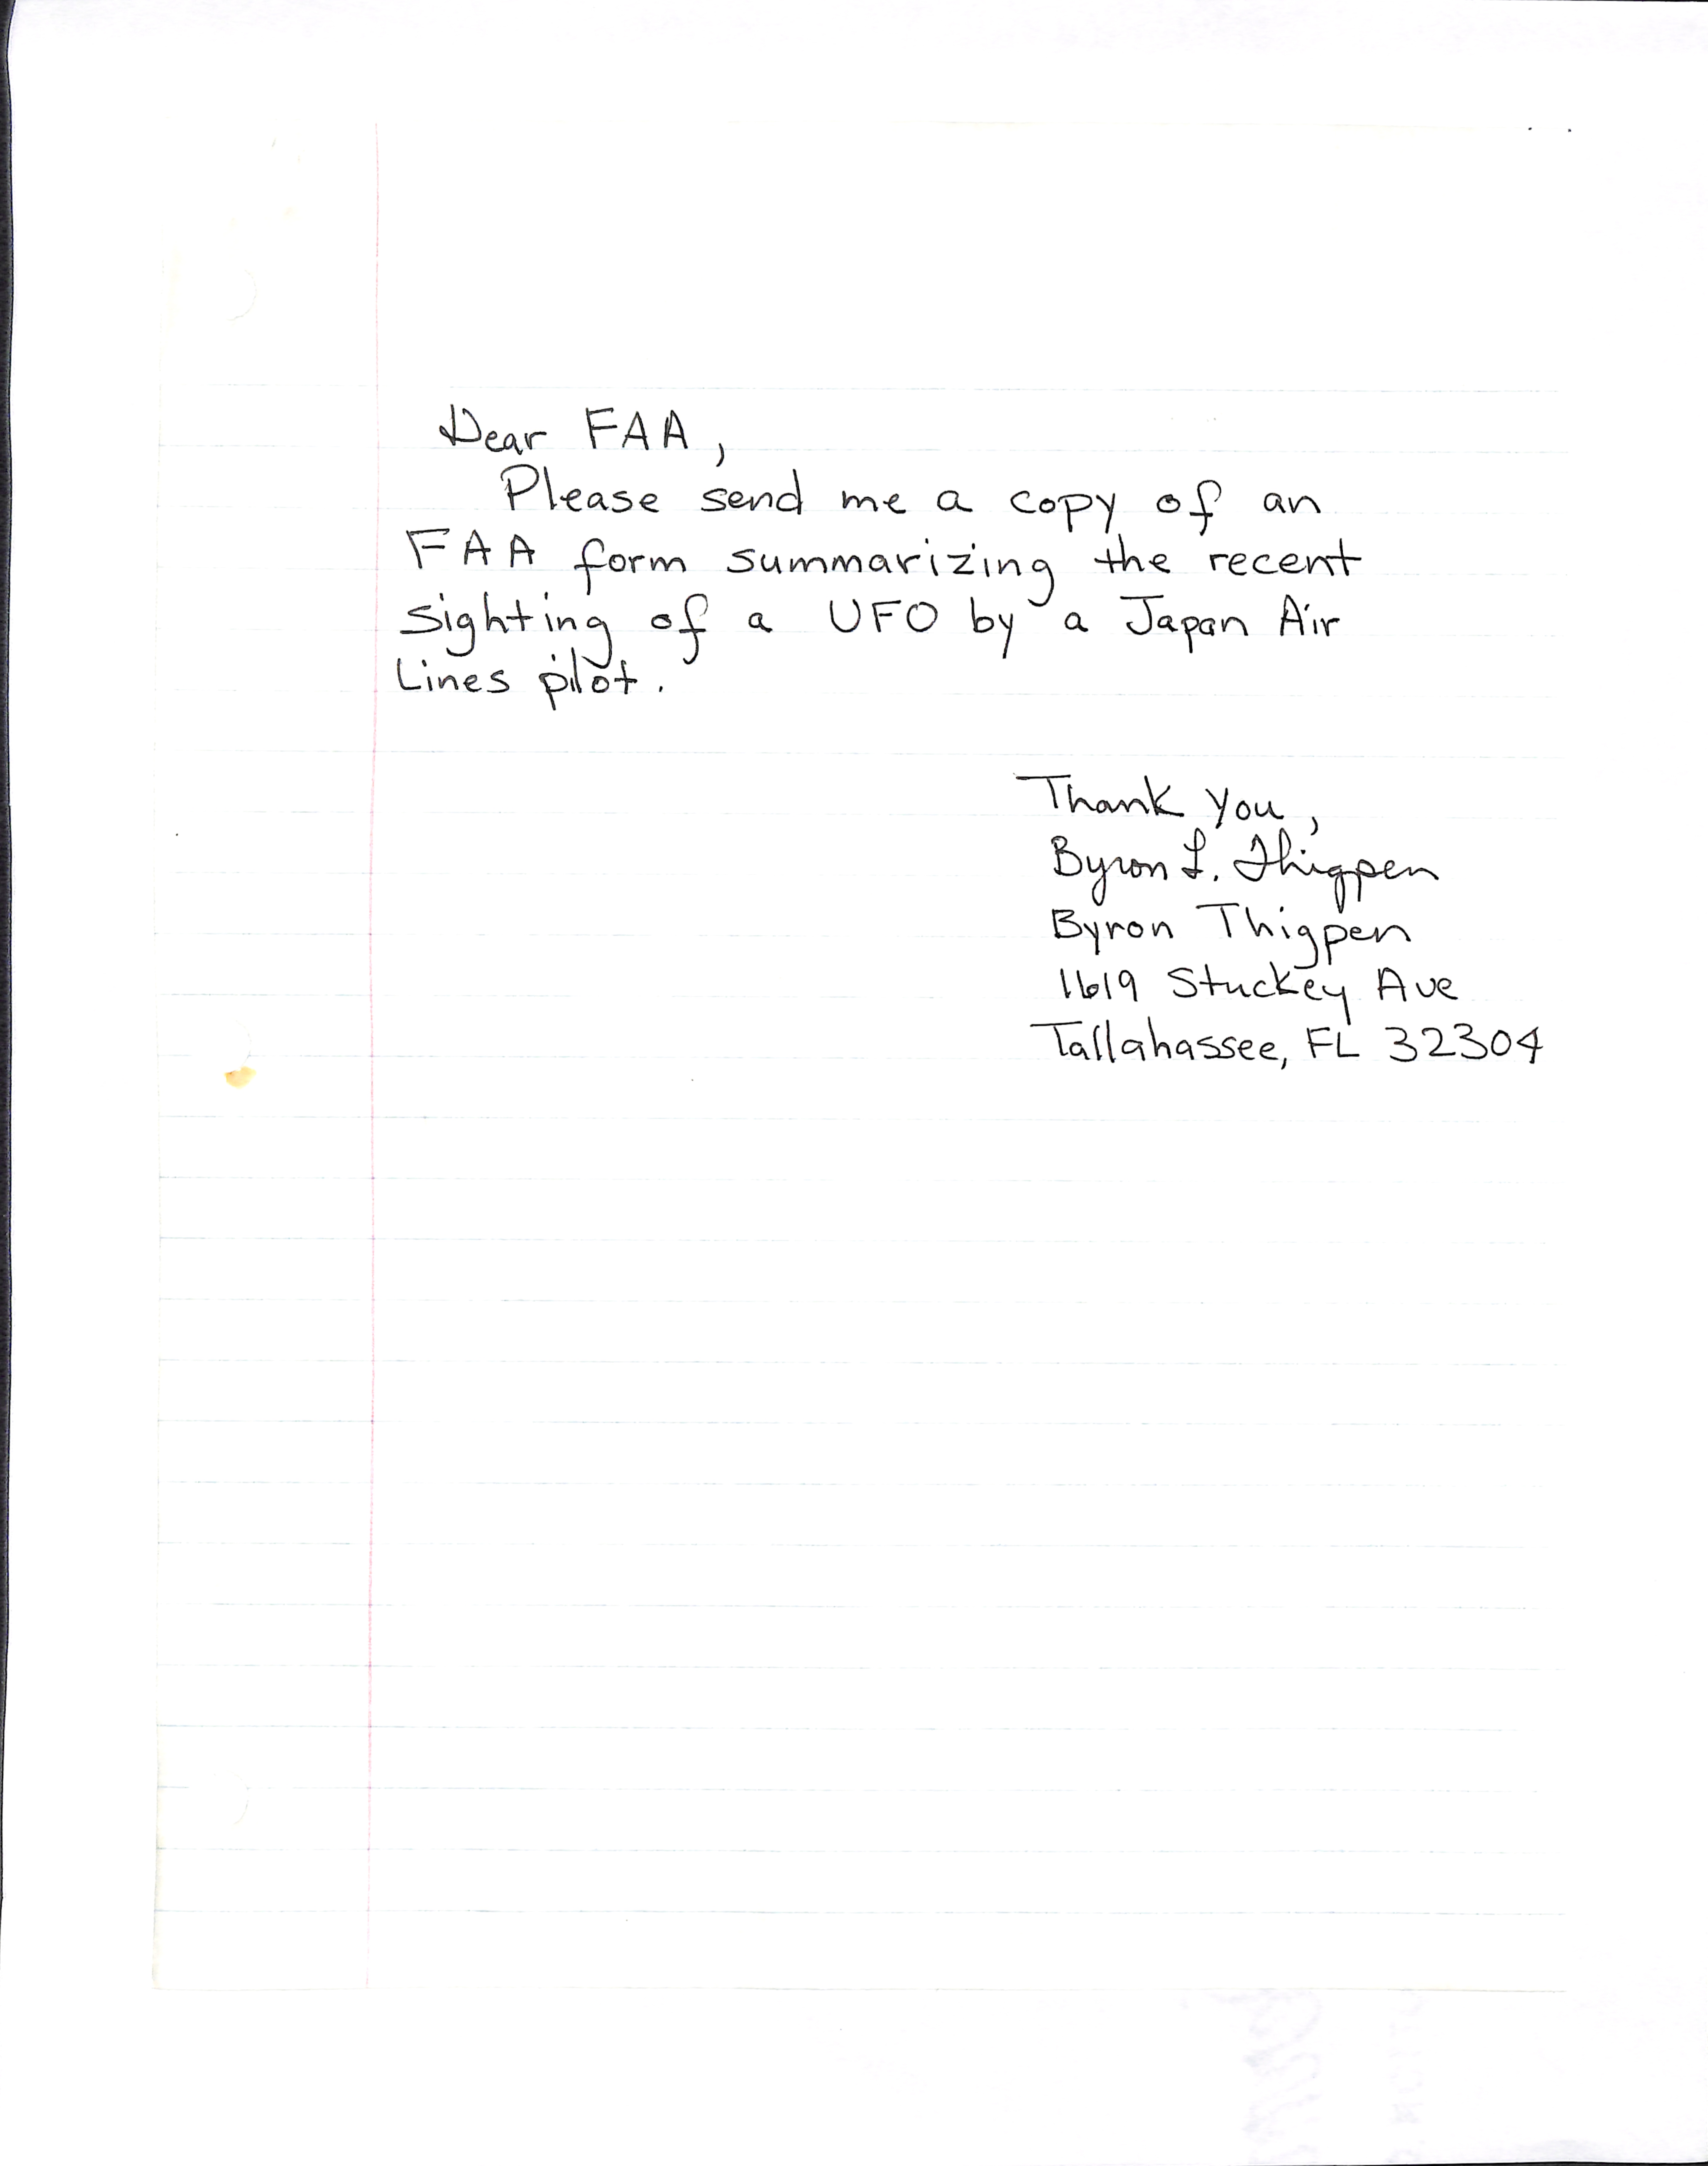 Dear FAA,
Please send me a copy of an
FAA form summarizing the recent
sighting of a UFO by a Japan Air
Lines pilot.
Thank you,
Byron L. Thigpen
Byron Thigpen
1619 Stuckey Ave
Tallahassee, FL 32304